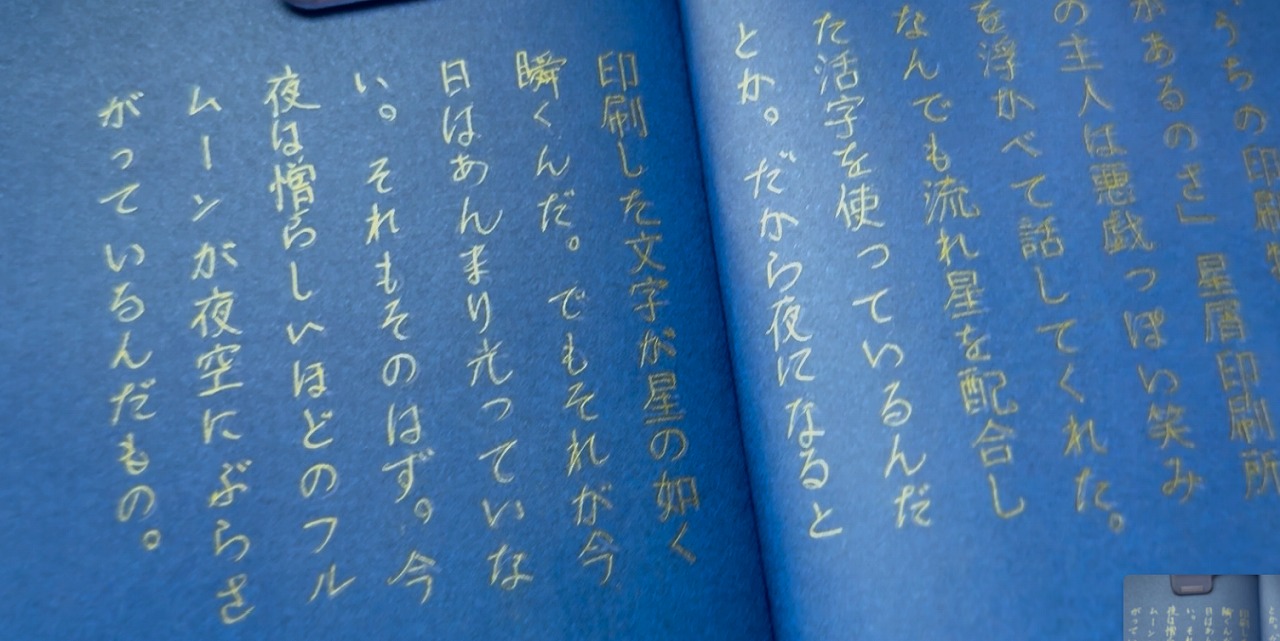 うちの印刷物
があるのさ」星屑印刷所
の主人は悪戯っぽい笑み
を浮かべて話してくれた。
なんでも流れ星を配合し
た活字を使っているんだ
とか。だから夜になると
印刷した文字が星の如く
瞬くんだ。でもそれが今
日はあんまり光っていな
い。それもそのはず。今
夜は憎らしいほどのフル
ムーンが夜空にぶらさ
がっているんだもの。